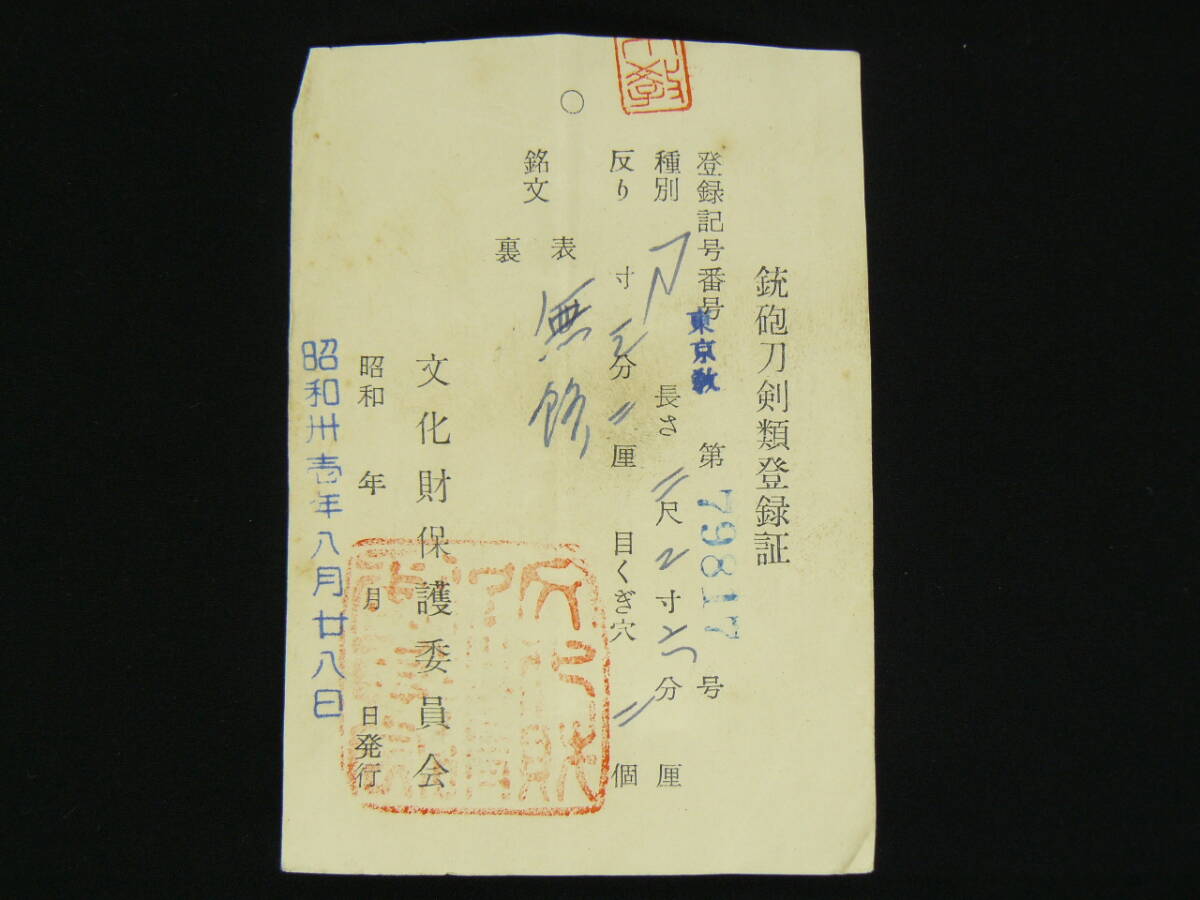 銃砲刀剣類登録証
登録記号番号 東京教 第79817号
種別 刀 長さ 二尺2寸六分 厘
反り 寸 三分二厘 目くぎ穴 二個
銘文
表 無銘
裏
文化財保護委員会
昭和 年 月 日発行
昭和卅壱年八月廿八日